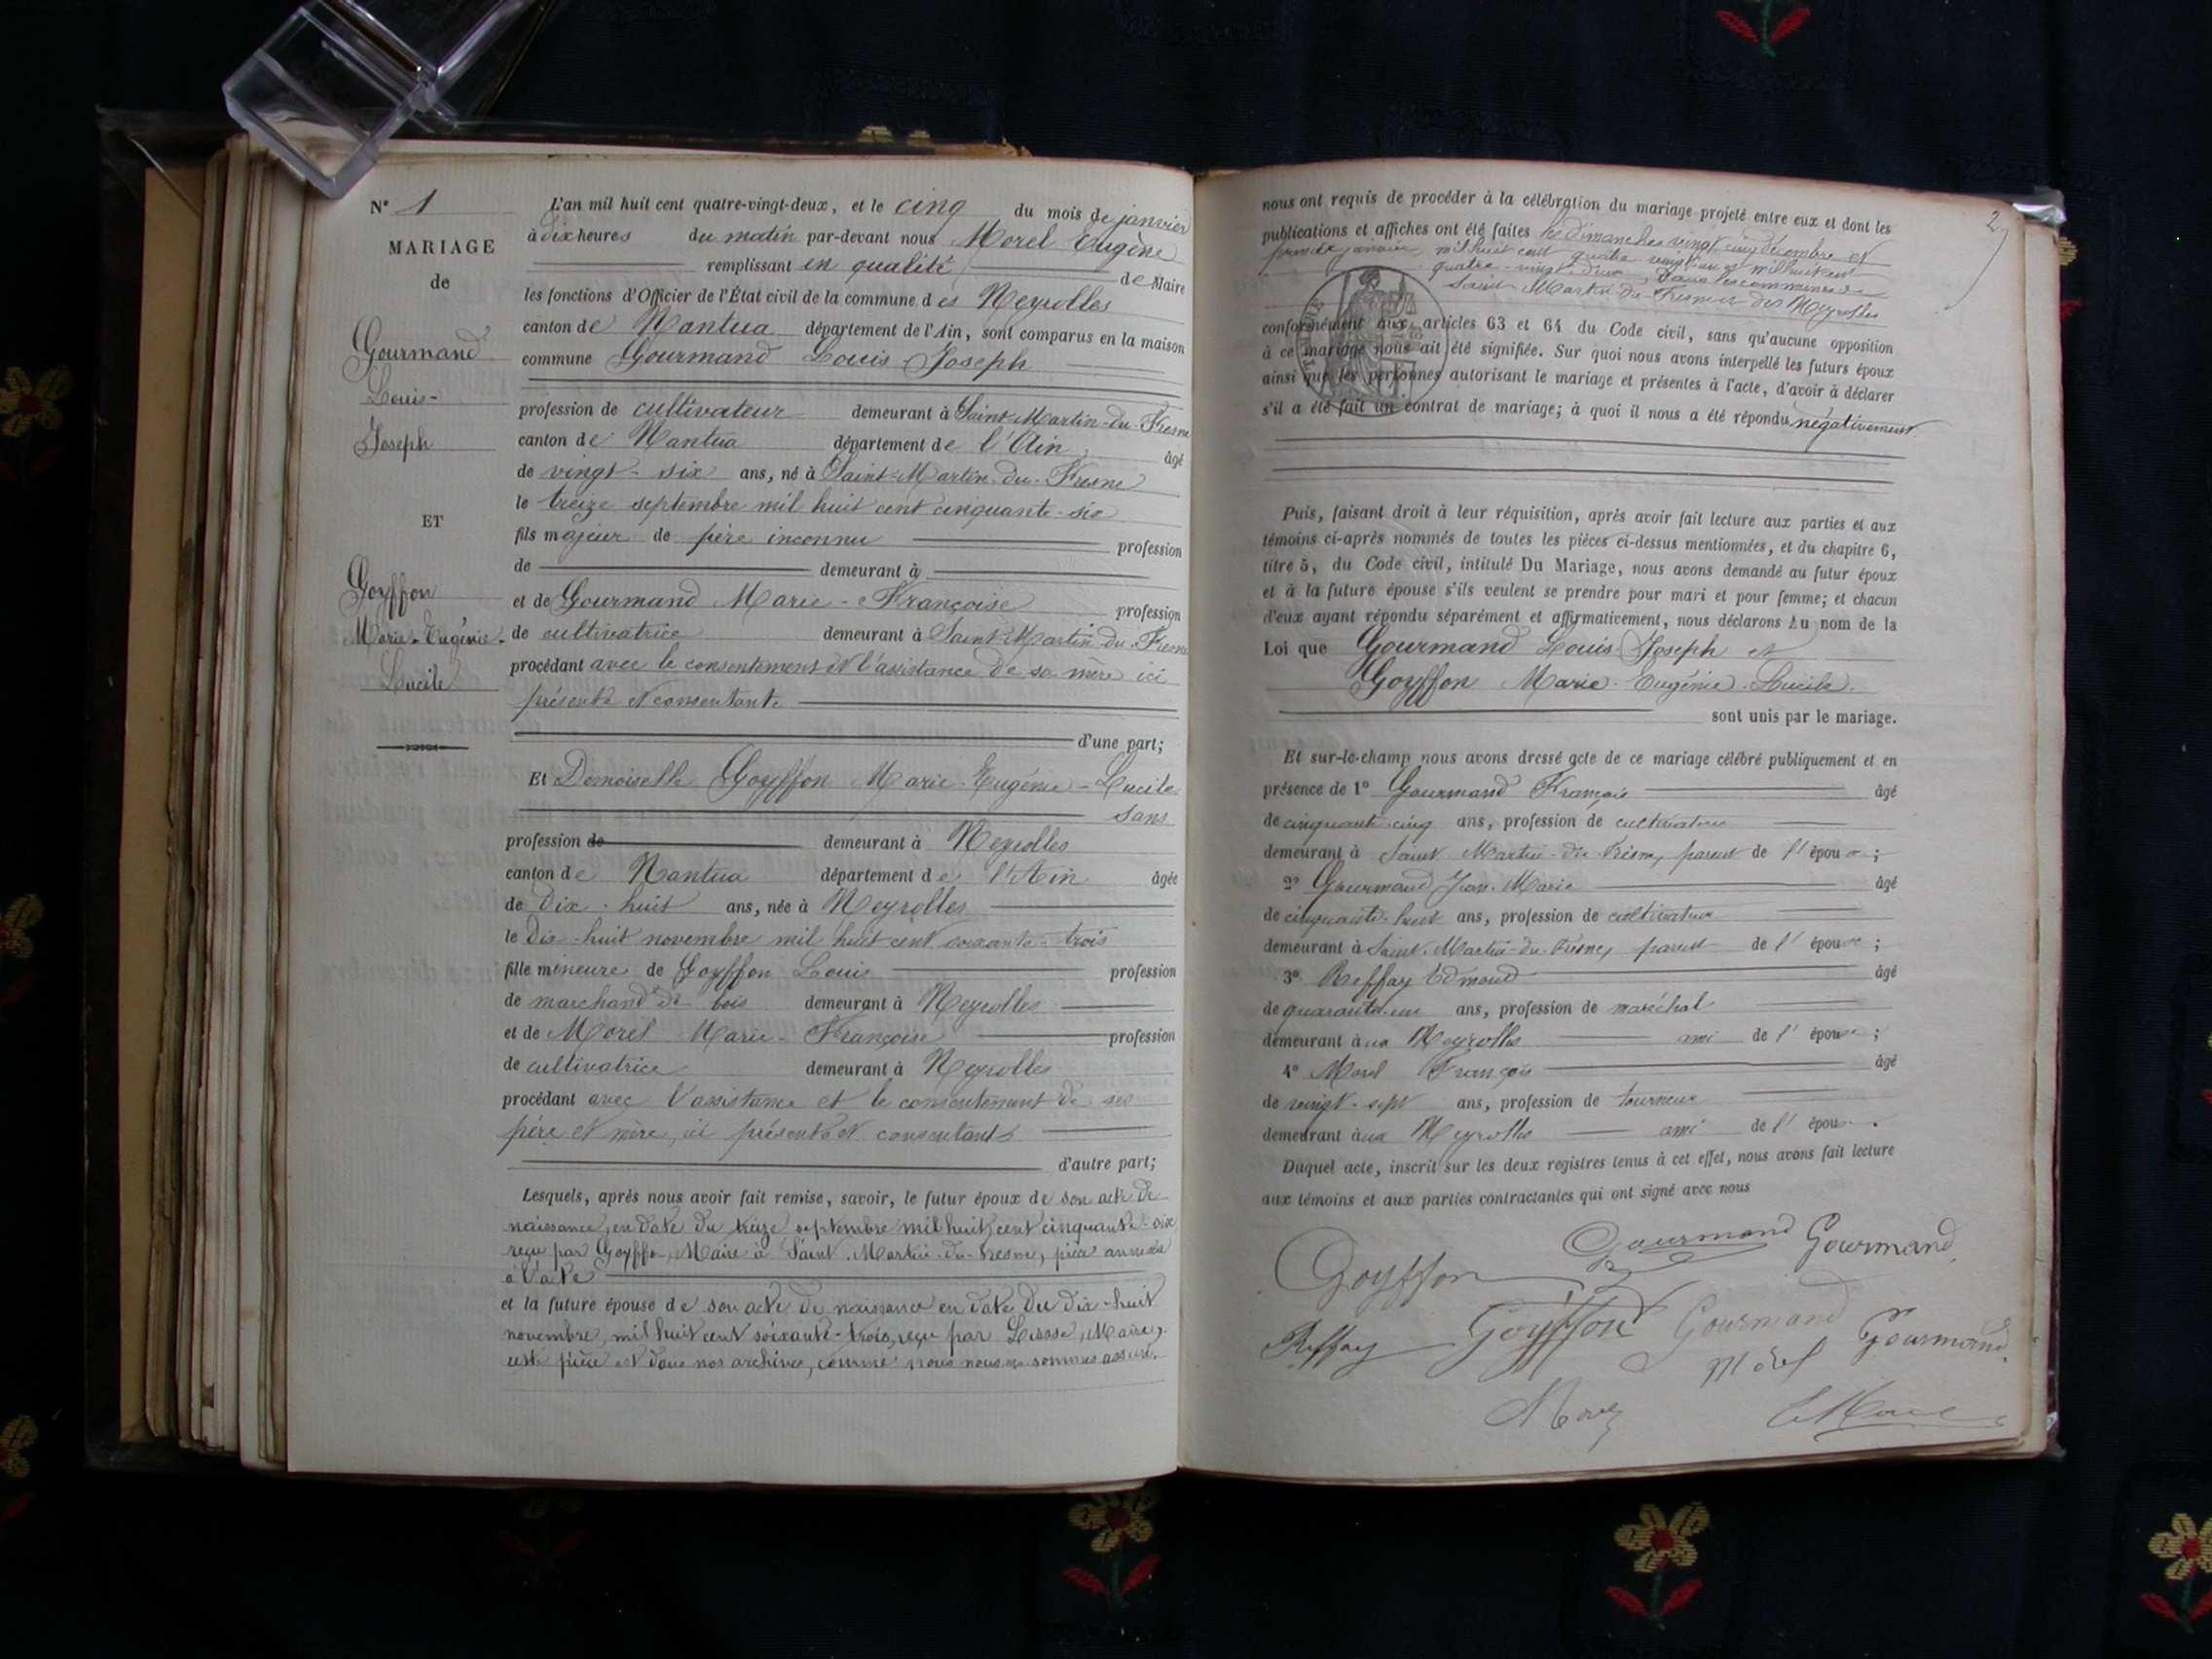 N° 1
MARIAGE
de
Gourmand
Louis-
Joseph
ET
Goyffon
Marie-Eugénie-
Lucile
L'an mil huit cent quatre-vingt-deux, et le cinq du mois de janvier
à dix heures du matin par-devant nous Morel Eugène
remplissant en qualité de Maire
les fonctions d'Officier de l'État civil de la commune des Neyrolles
canton de Nantua département de l'Ain, sont comparus en la maison
commune Gourmand Louis Joseph
profession de cultivateur demeurant à Saint-Martin-du-Fresne
canton de Nantua département de l'Ain âgé
de vingt-six ans, né à Saint-Martin-du-Fresne
le treize septembre mil huit cent cinquante-six
fils majeur de père inconnu profession
de demeurant à
et de Gourmand Marie-Françoise profession
de cultivatrice demeurant à Saint-Martin-du-Fresne
procédant avec le consentement et l'assistance de sa mère ici
présente et consentante
d'une part;
Et Demoiselle Goyffon Marie-Eugénie-Lucile
sans
profession de demeurant à Neyrolles
canton de Nantua département de l'Ain âgée
de dix-huit ans, née à Neyrolles
le dix-huit novembre mil huit cent soixante-trois
fille mineure de Goyffon Louis profession
de marchand de bois demeurant à Neyrolles
et de Morel Marie-Françoise profession
de cultivatrice demeurant à Neyrolles
procédant avec l'assistance et le consentement de ses
père et mère, ici présents et consentants
d'autre part;
Lesquels, après nous avoir fait remise, savoir, le futur époux de son acte de
naissance, en date du treize septembre mil huit cent cinquante-six
reçu par Goyffon, Maire à Saint-Martin-du-Fresne, pièce annexée
à l'acte
et la future épouse de son acte de naissance en date du dix-huit
novembre, mil huit cent soixante-trois, reçu par Maire,
cette pièce est dans nos archives, comme nous nous en sommes assuré.
2
nous ont requis de procéder à la célébration du mariage projeté entre eux et dont les
publications et affiches ont été faites les dimanches vingt-cinq décembre et
premier janvier, mil huit cent quatre-vingt-un et mil huit cent
quatre-vingt-deux, dans les communes de
Saint-Martin-du-Fresne et des Neyrolles
conformément aux articles 63 et 64 du Code civil, sans qu'aucune opposition
à ce mariage nous ait été signifiée. Sur quoi nous avons interpellé les futurs époux
ainsi que les personnes autorisant le mariage et présentes à l'acte, d'avoir à déclarer
s'il a été fait un contrat de mariage; à quoi il nous a été répondu négativement.
Puis, faisant droit à leur réquisition, après avoir fait lecture aux parties et aux
témoins ci-après nommés de toutes les pièces ci-dessus mentionnées, et du chapitre 6,
titre 5, du Code civil, intitulé Du Mariage, nous avons demandé au futur époux
et à la future épouse s'ils veulent se prendre pour mari et pour femme; et chacun
d'eux ayant répondu séparément et affirmativement, nous déclarons Au nom de la
Loi que Gourmand Louis-Joseph et
Goyffon Marie-Eugénie-Lucile.
sont unis par le mariage.
Et sur-le-champ nous avons dressé acte de ce mariage célébré publiquement et en
présence de 1° Gourmand François âgé
de cinquante-cinq ans, profession de cultivateur
demeurant à Saint-Martin-du-Fresne, parent de l'époux;
2° Gourmand Jean-Marie âgé
de cinquante-huit ans, profession de cultivateur
demeurant à Saint-Martin-du-Fresne, parent de l'époux;
3° Reffay Edmond âgé
de quarante-un ans, profession de maréchal
demeurant aux Neyrolles ami de l'épouse;
4° Morel François âgé
de vingt-sept ans, profession de tourneur
demeurant aux Neyrolles ami de l'épouse.
Duquel acte, inscrit sur les deux registres tenus à cet effet, nous avons fait lecture
aux témoins et aux parties contractantes qui ont signé avec nous
Gourmand Gourmand
Goyffon
Reffay Goyffon Gourmand Gourmand
Morel
Morel